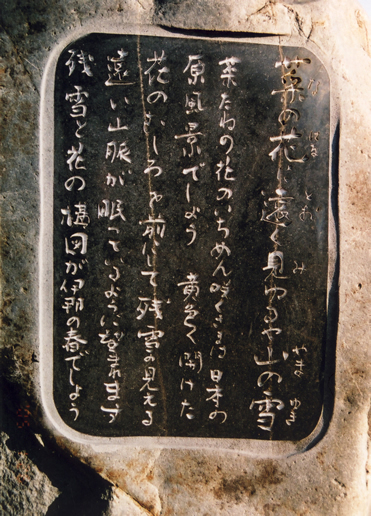 菜の花に遠く見ゆるや山の雪
菜たねの花のいちめん咲くさまは日本の
原風景でしょう　黄色く開けた
花のむしろを前にして残雪の見える
遠い山脈が眠っているように望まれます
残雪と花の構図が伊那の春でしょう